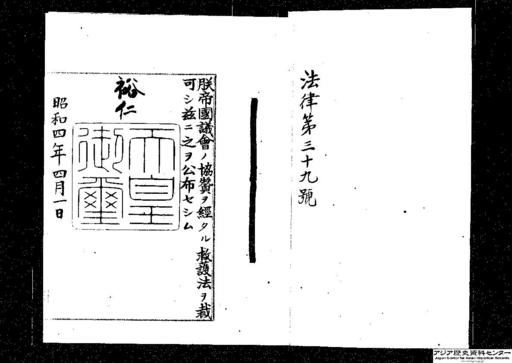 法律第三十九號
朕帝國議會ノ協贊ヲ經タル救護法ヲ裁
可シ茲ニ之ヲ公布セシム
裕仁
天皇
御璽
昭和四年四月一日
アジア歴史資料センター
Japan Center for Asian Historical Records